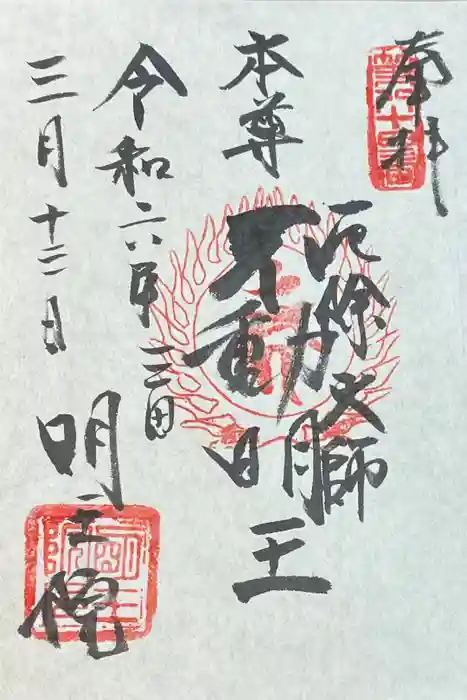 奉拝
厄除大師
本尊
不動明王
令和六年
三月十二日
三田
明王院